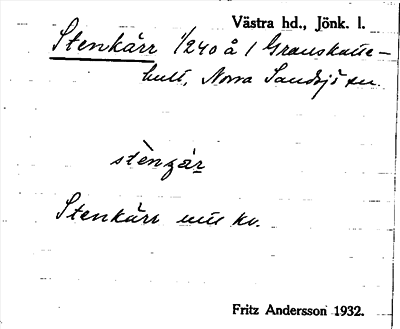 Västra hd., Jönk. l.
Stenkärr 1/240 å 1 Granskatte-
hult, Norra Sandsjö sn.
stènçär
Stenkärr utt kv.
Fritz Andersson 1932.